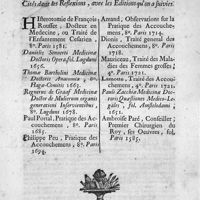 Cités dans les Reflexions, avec les Editions qu'on a suivies.
Histerotomie de François
Rousset, Docteur en
Medecine, ou Traité de
l'Enfantement Cesarien,
8°. Paris 1581.
Danielis Sennerti Medicinæ
Doctoris Opera, fol. Lugduni
1650.
Thomæ Bartholini Medicinæ
Doctoris Anatomia, 8°.
Haga-Comitis 1665.
Regnerus de Graaf Medicinæ
Doctor de Mulierum organis
generationi Inservientibus,
8°. Lugduni 1678.
Paul Portal, Pratique des Accouchemens,
8°. Paris
1685.
Philippe Peu, Pratique des
Accouchemens, 8°. Paris
1694.
Amand, Observations sur la
Pratique des Accouchemens,
8°. Paris 1714.
Dionis, Traité general des
Accouchemens, 8°. Paris
1718.
Mauriceau, Traité des Maladies
des Femmes grosses,
4°. Paris 1721.
Lamotte, Traité des Accouchemens,
4°. Paris 1722.
Pauli Zacchiæ Medicinæ Doctoris
Quæstiones Medico-Legales,
fol. Amstelodami
1651.
Ambroise Paré, Conseiller &
Premier Chirurgien du
Roy, ses Oeuvres, fol.
Paris 1585.